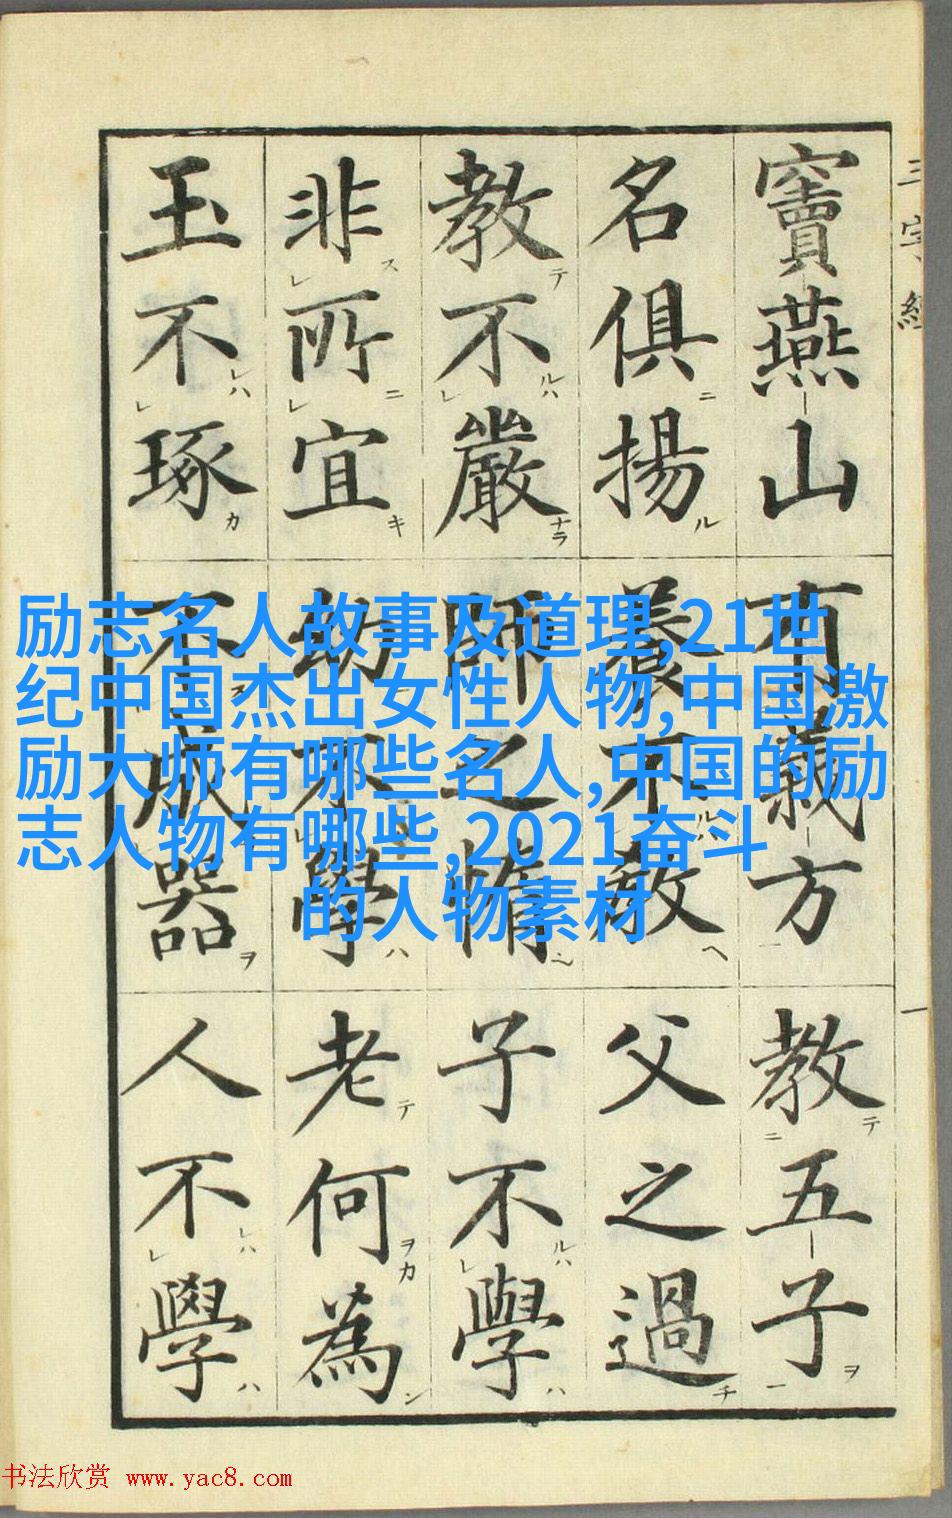 三字經
一
竇燕山有義方教五子
名俱揚養不教父之過
教不嚴師之惰子不學
非所宜幼不學老何為
玉不琢不成器人不學
励志名人故事及道理,21世
纪中国杰出女性人物,中国激
励大师有哪些名人,中国的励
志人物有哪些,2021奋斗
的人物素材
书法欣赏 www.yac8.com